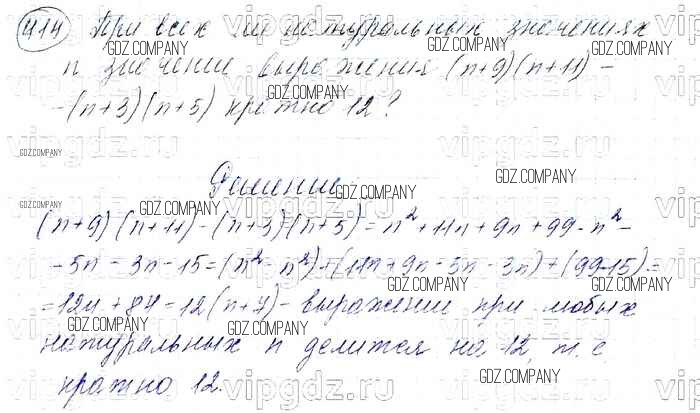 414 При всех ли натуральных значениях
n значение выражения (n+9)(n+11) -
-(n+3)(n+5) кратно 12?
Решение
(n+9)(n+11)-(n+3)(n+5)=n²+11n+9n+99-n²-
-5n-3n-15=(n²-n²)+(11n+9n-5n-3n)+(99-15)=
=12n+84=12(n+7)-выражение при любых
натуральных n делится на 12, т.е
кратно 12.
GDZ.COMPANY
vipgdz.ru